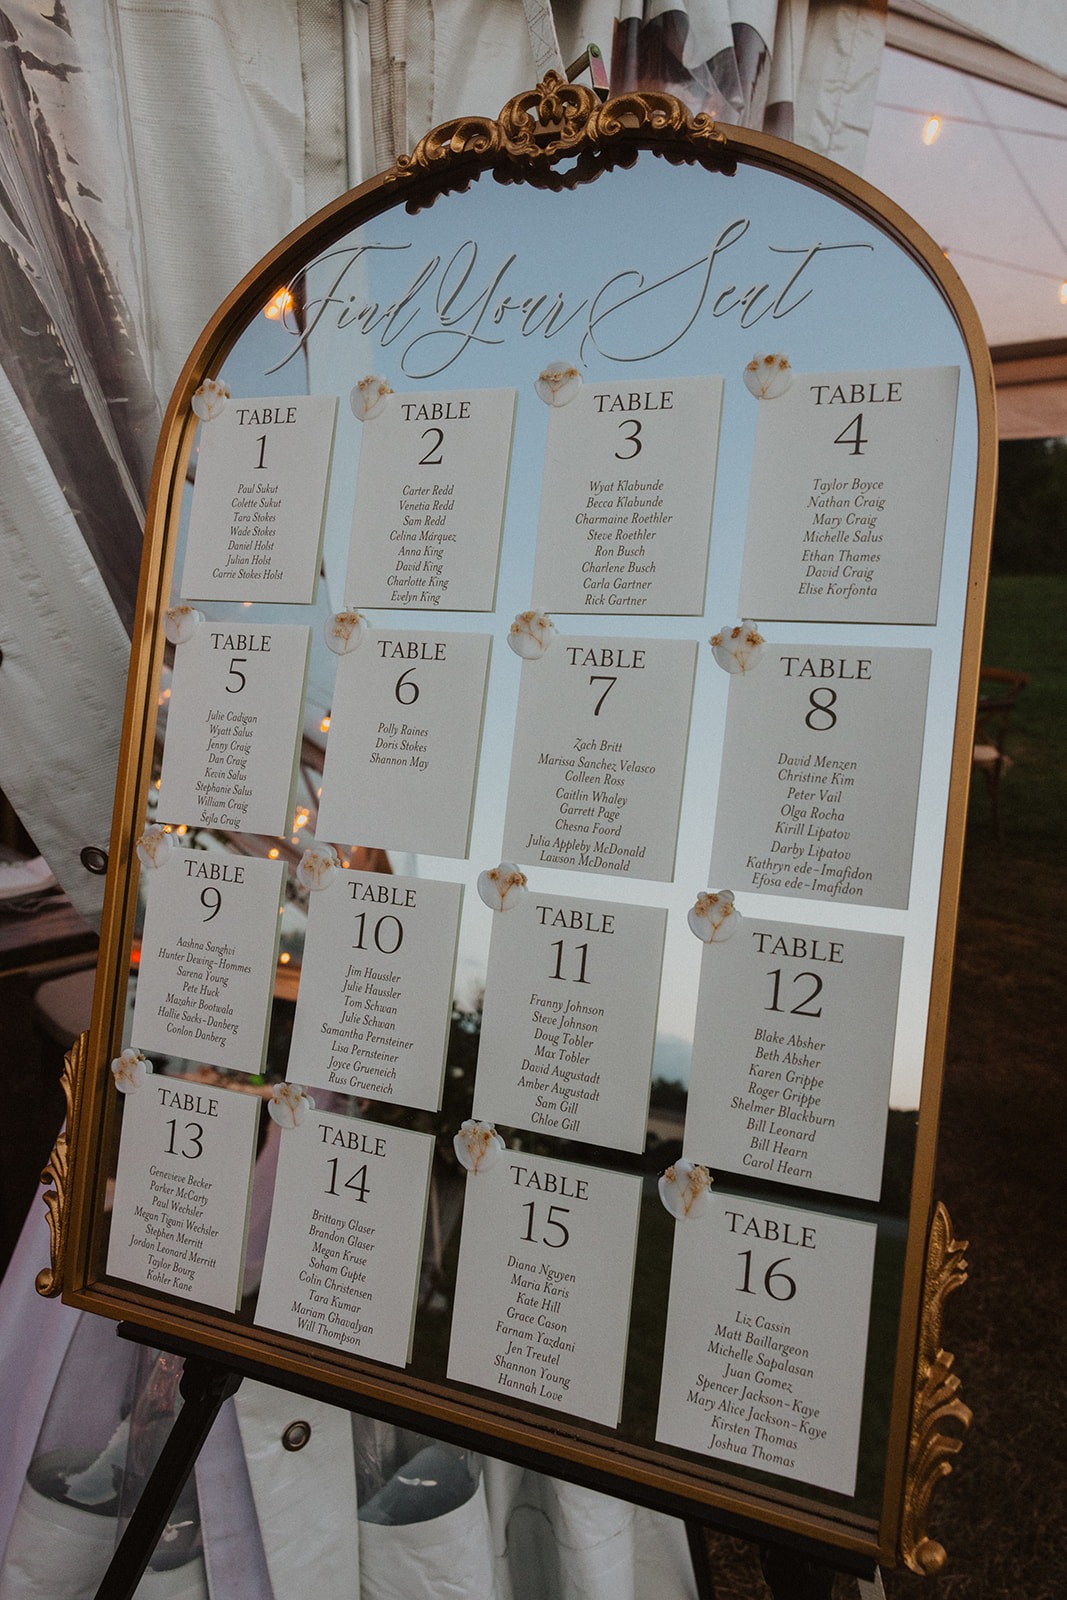 Find Your Seat
TABLE
1
Paul Sukut
Colette Sukut
Tara Stokes
Wade Stokes
Daniel Holst
Julian Holst
Carrie Stokes Holst
TABLE
2
Carter Redd
Venetia Redd
Sam Redd
Celina Márquez
Anna King
David King
Charlotte King
Evelyn King
TABLE
3
Wyat Klabunde
Becca Klabunde
Charmaine Roethler
Steve Roethler
Ron Busch
Charlene Busch
Carla Gartner
Rick Gartner
TABLE
4
Taylor Boyce
Nathan Craig
Mary Craig
Michelle Salus
Ethan Thames
David Craig
Elise Korfonta
TABLE
5
Julie Cadigan
Wyatt Salus
Jenny Craig
Dan Craig
Kevin Salus
Stephanie Salus
William Craig
Šejla Craig
TABLE
6
Polly Raines
Doris Stokes
Shannon May
TABLE
7
Zach Britt
Marissa Sanchez Velasco
Colleen Ross
Caitlin Whaley
Garrett Page
Chesna Foord
Julia Appleby McDonald
Lawson McDonald
TABLE
8
David Menzen
Christine Kim
Peter Vail
Olga Rocha
Kirill Lipatov
Darby Lipatov
Kathryn ede-Imafidon
Efosa ede-Imafidon
TABLE
9
Aashna Sanghvi
Hunter Dewing-Hommes
Sarena Young
Pete Huck
Mazahir Bootwala
Hallie Sacks-Danberg
Conlon Danberg
TABLE
10
Jim Haussler
Julie Haussler
Tom Schwan
Julie Schwan
Samantha Pernsteiner
Lisa Pernsteiner
Joyce Grueneich
Russ Grueneich
TABLE
11
Franny Johnson
Steve Johnson
Doug Tobler
Max Tobler
David Augustadt
Amber Augustadt
Sam Gill
Chloe Gill
TABLE
12
Blake Absher
Beth Absher
Karen Grippe
Roger Grippe
Shelmer Blackburn
Bill Leonard
Bill Hearn
Carol Hearn
TABLE
13
Genevieve Becker
Parker McCarty
Paul Wechsler
Megan Tigani Wechsler
Stephen Merritt
Jordan Leonard Merritt
Taylor Bourg
Kohler Kane
TABLE
14
Brittany Glaser
Brandon Glaser
Megan Kruse
Soham Gupte
Colin Christensen
Tara Kumar
Mariam Ghavalyan
Will Thompson
TABLE
15
Diana Nguyen
Maria Karis
Kate Hill
Grace Cason
Farnam Yazdani
Jen Treutel
Shannon Young
Hannah Love
TABLE
16
Liz Cassin
Matt Baillargeon
Michelle Sapalasan
Juan Gomez
Spencer Jackson-Kaye
Mary Alice Jackson-Kaye
Kirsten Thomas
Joshua Thomas